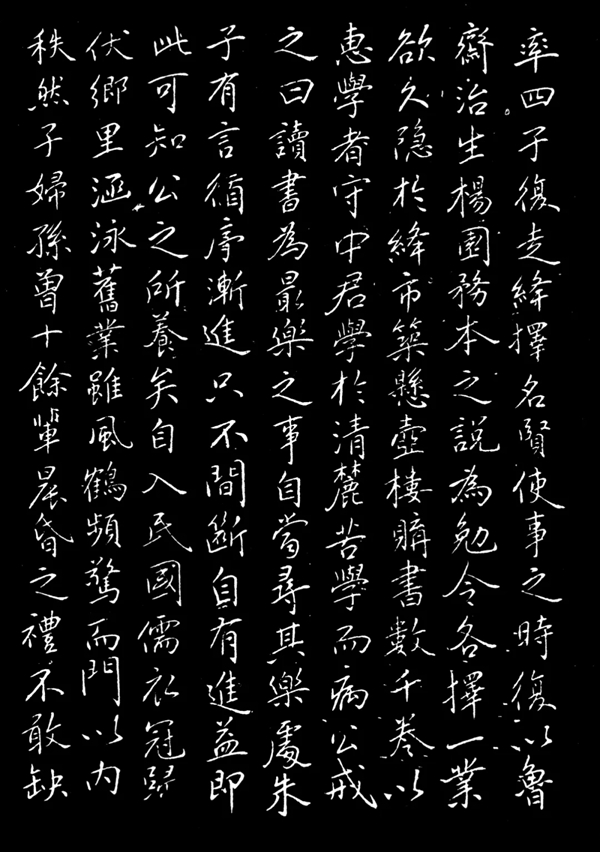 率四子復走絳擇名賢使事之時復以魯
齋治生楊園務本之說為勉令各擇一業
欲久隐於絳市築懸壺棲購書數千卷以
惠學者守中君學於清麓苦學而病公戒
之曰讀書為最樂之事自當尋其樂處朱
子有言循序漸進只不間斷自有進益即
此可知公之所養矣自入民國儒衣冠歸
伏鄉里涵泳舊業雖風鶴頻驚而門以內
秩然子婦孫曾十餘輩晨昏之禮不敢缺